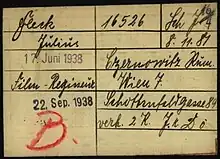 Fleck 16526 Sch. Jd.
Julius 8.11.81
17. Juni 1938 Czernowitz Rum.
Film-Regisseur Wien 7.
22. Sep. 1938 Schottenfeldgasse
verh. 2 K. Jd.